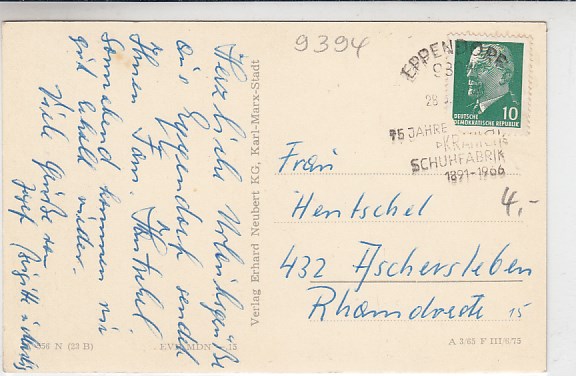 9394
EPPENDORF
DEUTSCHE
DEMOKRATISCHE REPUBLIK
10
75 JAHRE
SCHUHFABRIK
1891-1966
4,-
Herzliche Urlaubsgrüße
aus Eppendorf sendet
Ihnen Fam. Hentschel
Sonnabend kommen wir
gut erholt wieder.
Viele Grüße von
Verlag Erhard Neubert KG, Karl-Marx-Stadt
Frau
Hentschel
432 Aschersleben
15
A 3/65 F III/6/75